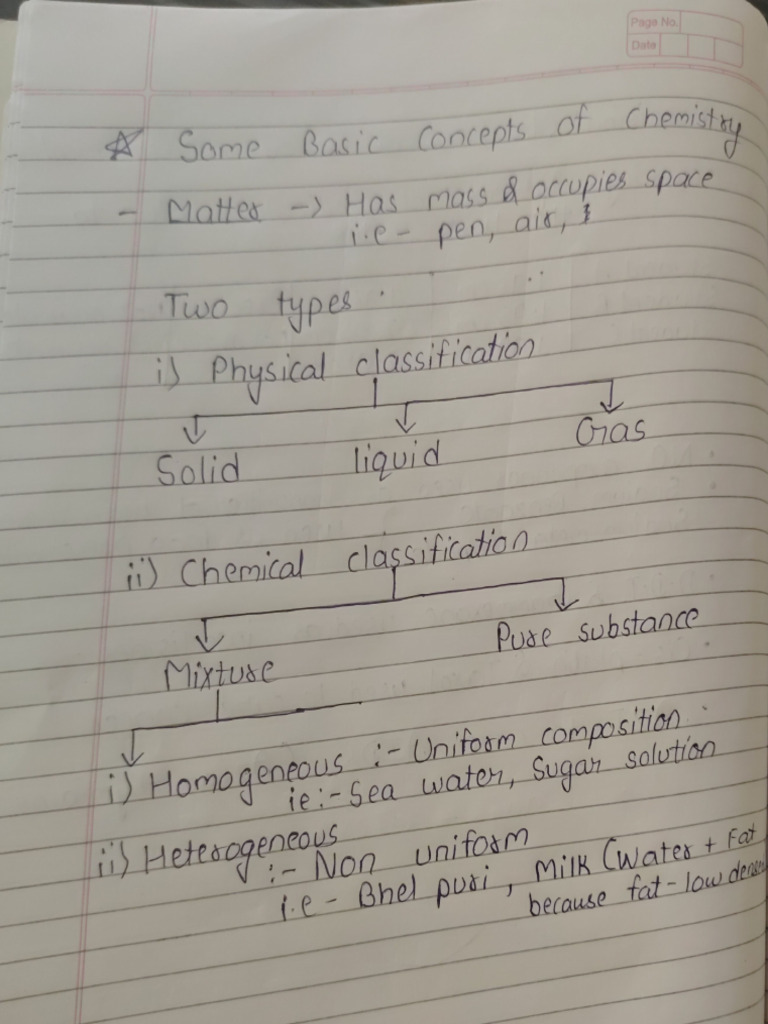 Page No.
Date
☆ Some Basic Concepts of Chemistry
- Matter -> Has mass & occupies space
i.e - pen, air,
Two types
i) Physical classification
Solid liquid Gas
ii) Chemical classification
Mixture Pure substance
i) Homogeneous :- Uniform composition
ie:- Sea water, Sugar solution
ii) Heterogeneous
:- Non uniform
i.e - Bhel puri, Milk (Water + Fat
because fat - low